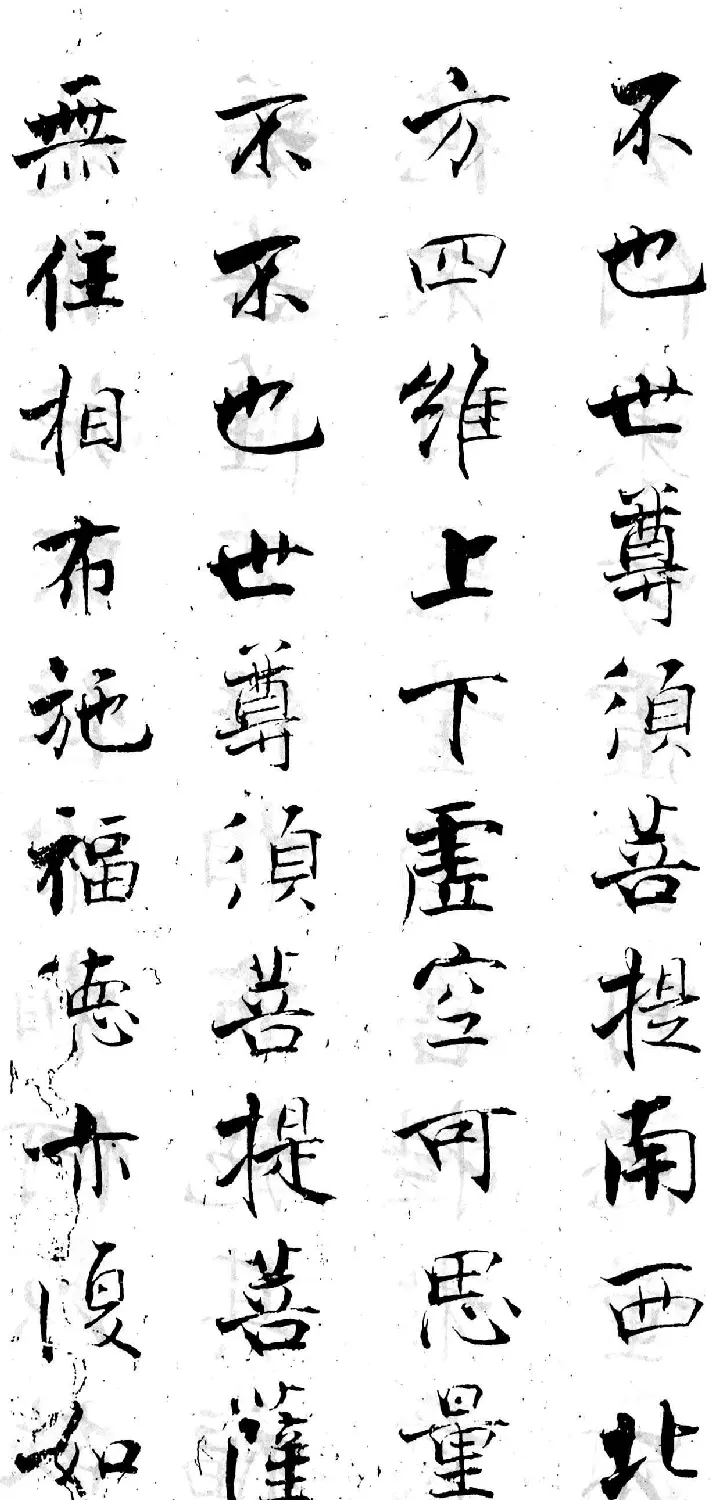 不也世尊須菩提南西北
方四維上下虛空可思量
不不也世尊須菩提菩薩
無住相布施福德亦復如